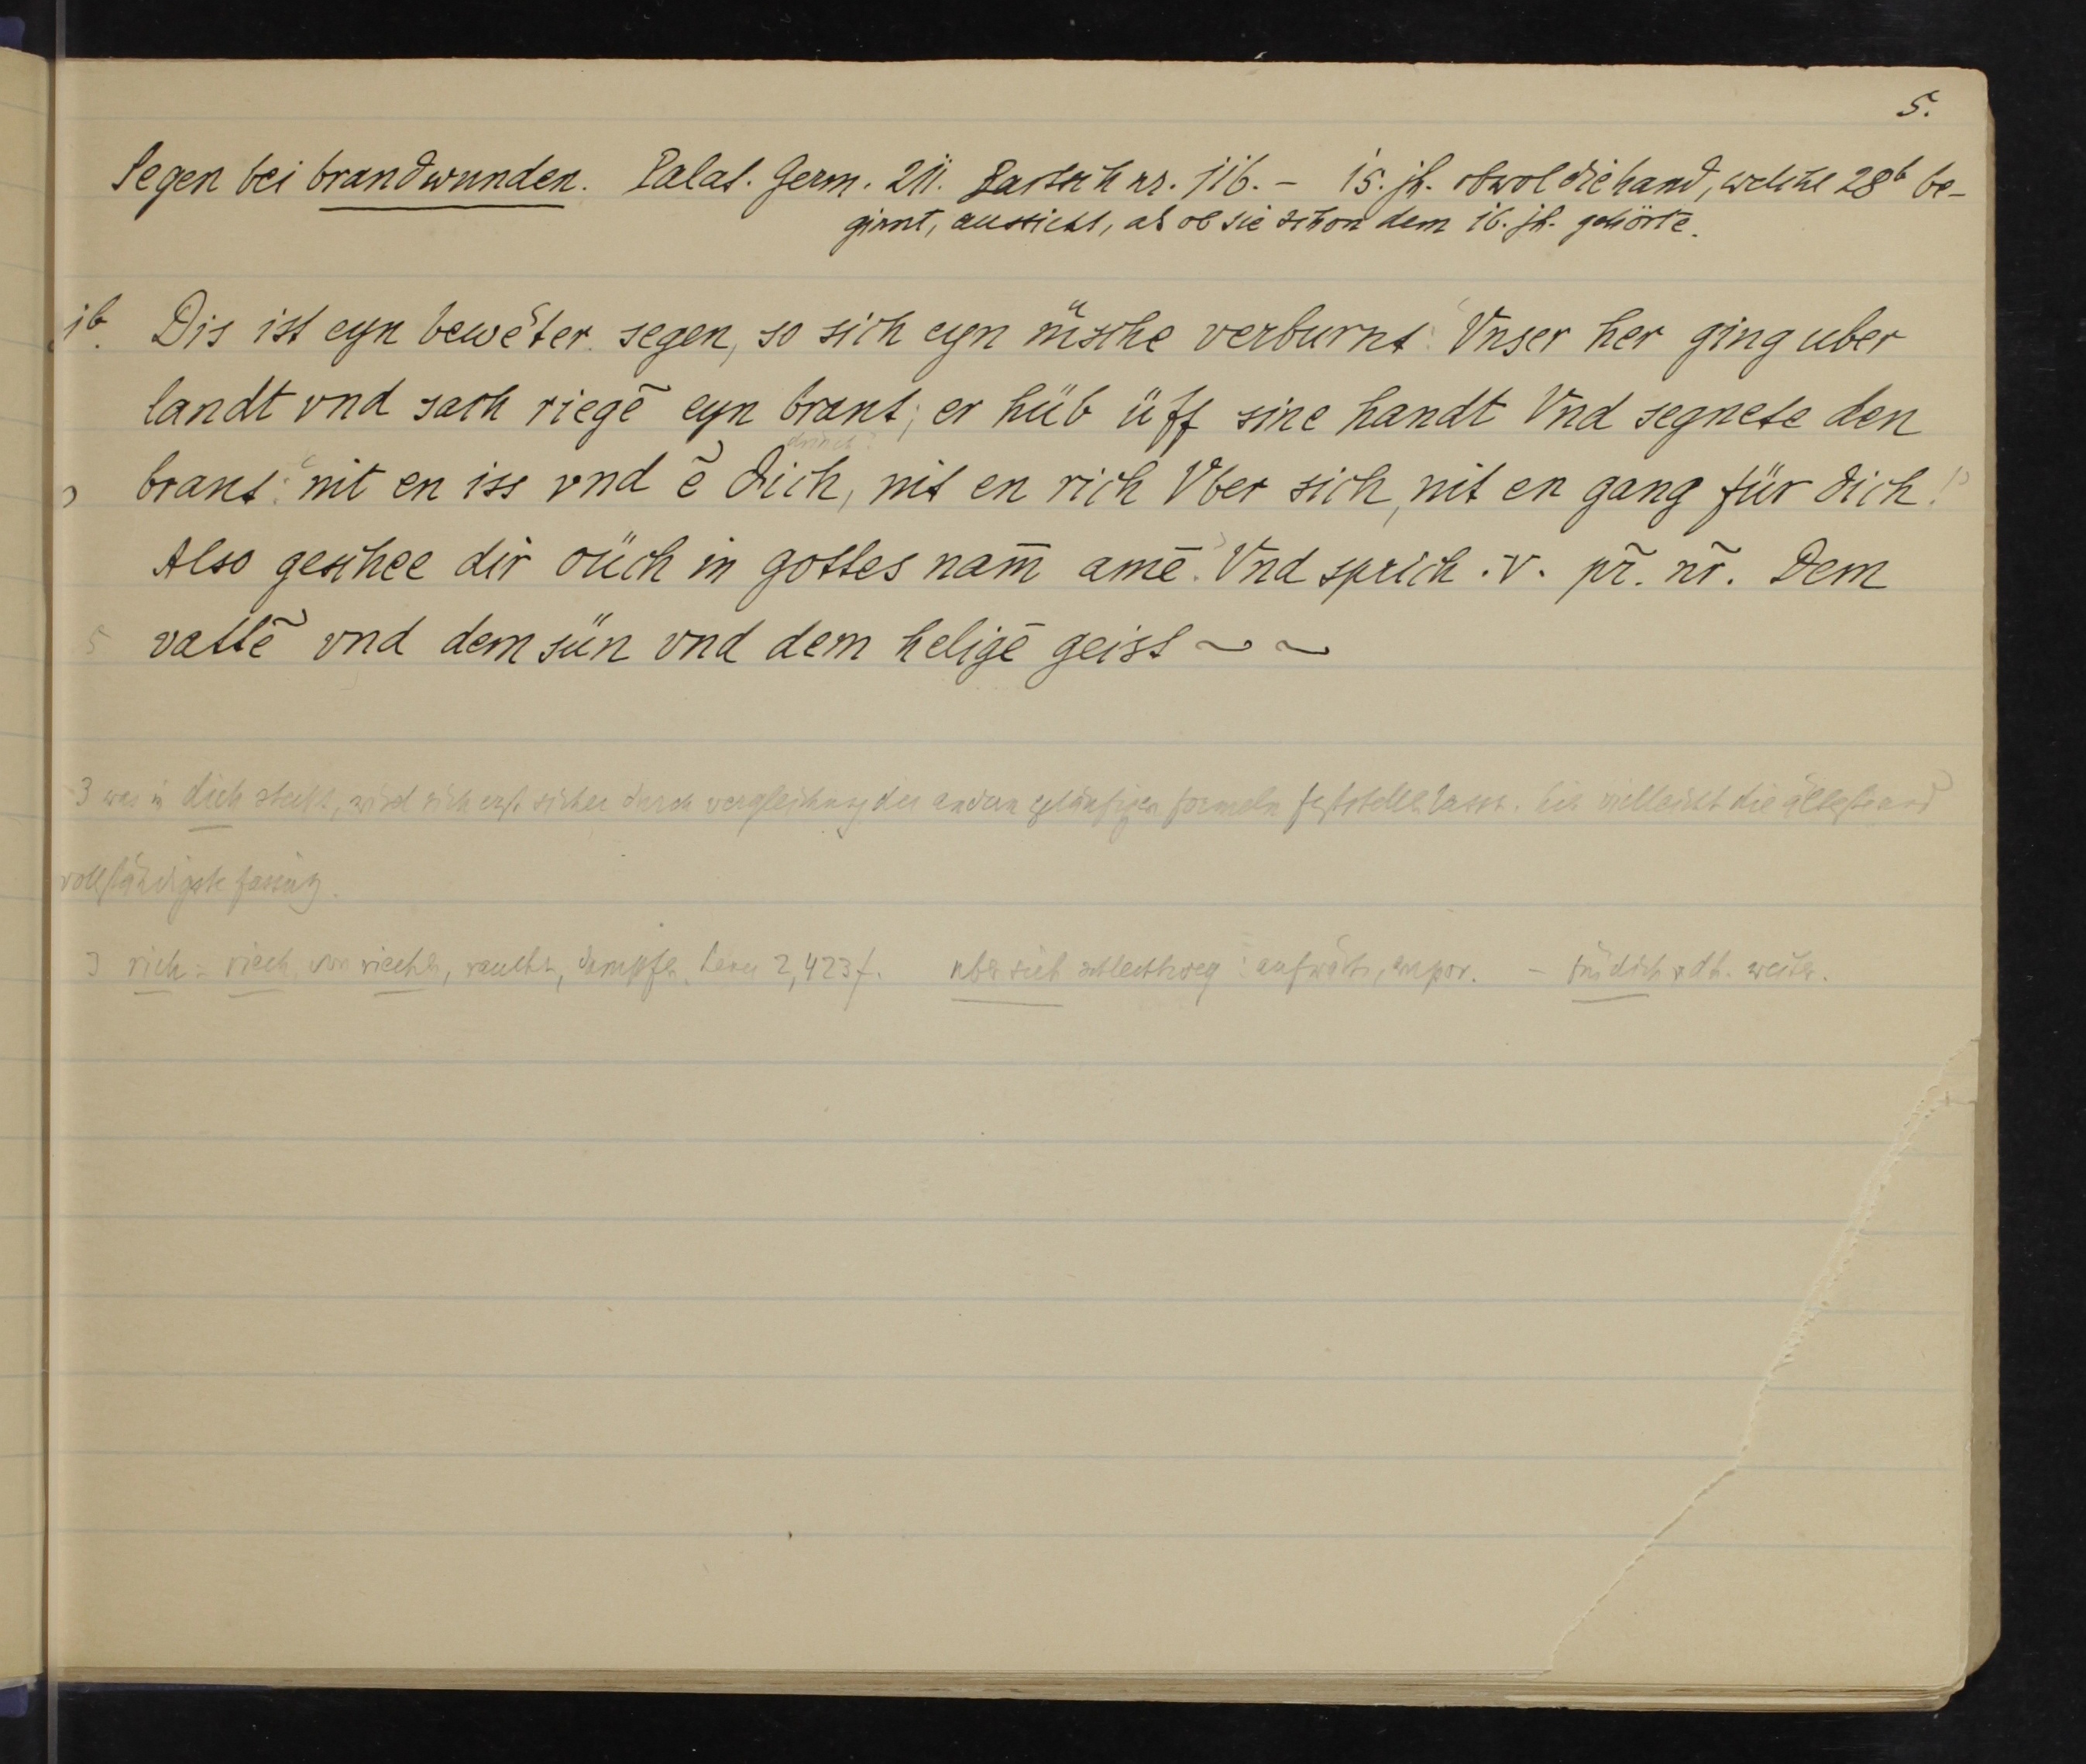 5.
Segen bei brandwunden. Palat. Germ. 211. Bartsch nr. 116. – 15. jh. obwol die hand, welche 28b be-
ginnt, aussieht, als ob sie schon dem 16. jh. gehörte.
1b. Dis ist eyn bewe͂ter segen, so sich eyn me͂sche verburnt: Vnser her ging uber
landt vnd sach riege͂ eyn brant; er hüb üff sine handt Vnd segnete den
drinck?
3 brant: 'nit en iss vnd e͂ dich, nit en rich Vber sich, nit en gang für dich!'
Also geschee dir oüch in gottes nam̄ amē. Vnd sprich .v. pr̄. nr̄. Dem
5 vattē vnd dem sün vnd dem heligē geist ~ ~
3 was in dich steckt, wird sich erst sicher durch vergleichung der andern geläufigen formeln feststellen lassen. hier vielleicht die älteste und
vollständigste fassung.
3 rich = riech, von riechen, rauchen, dampfen. Lexer 2,423f. uber sich schlechtweg: aufwärts, empor. – für dich adh. weiter.